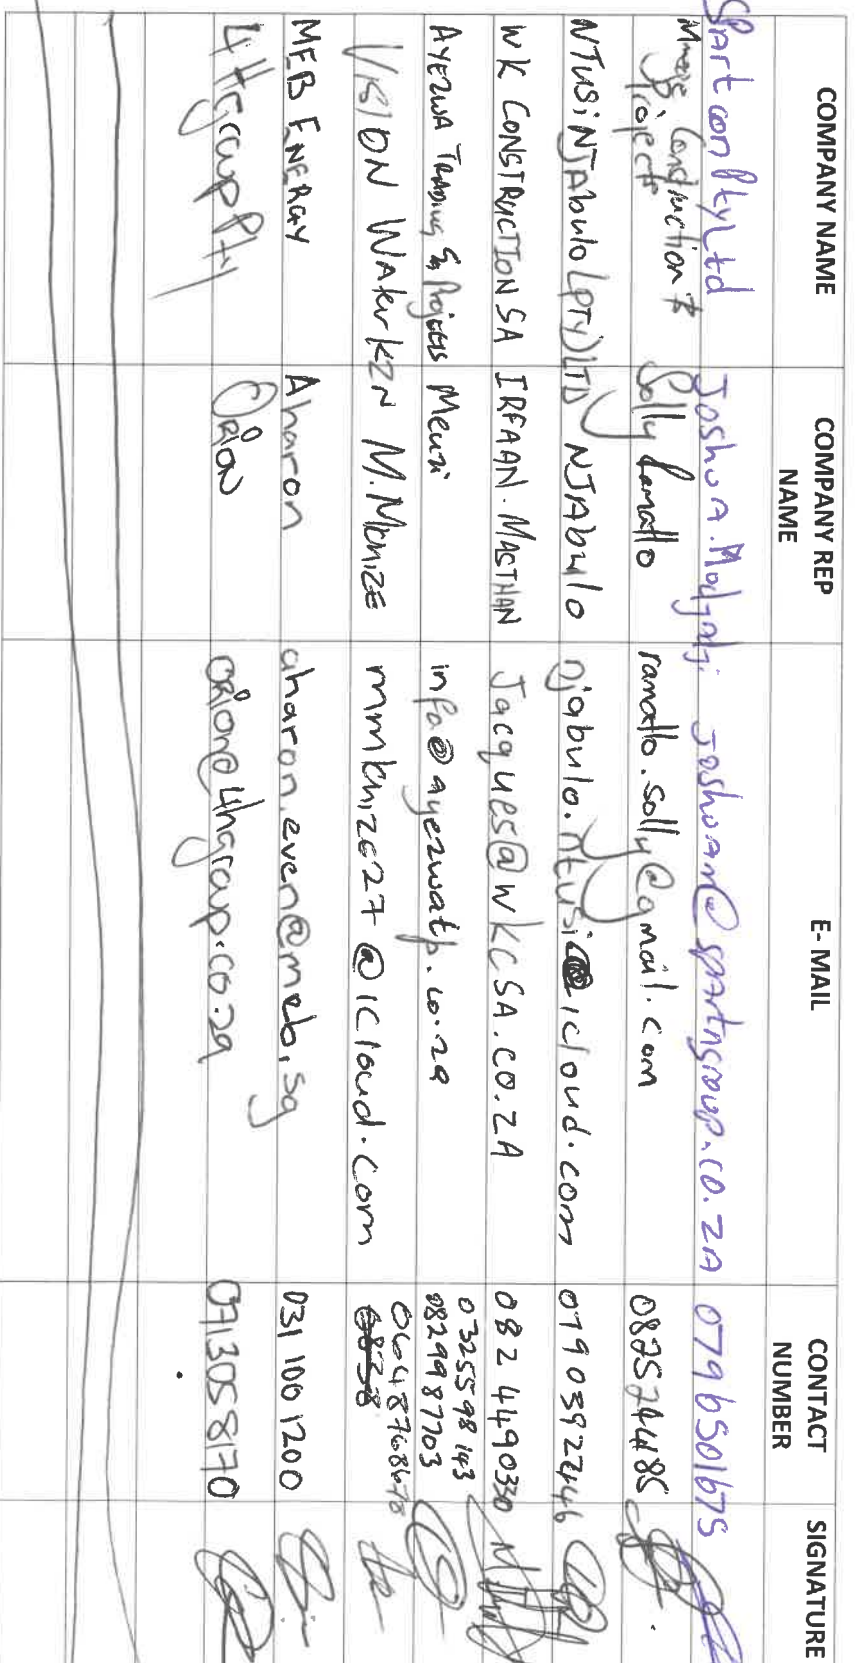 COMPANY NAME COMPANY REP NAME E- MAIL CONTACT NUMBER SIGNATURE
Spartcon Pty Ltd Joshua.Modjadji Joshuam@spartngroup.co.ZA 0796501675
Construction & Projects Solly Ramatlo ramatlo.solly@gmail.com 0825274485
NTUSINJAbulo (PTY) LTD NJAbulo njabulo.ntusi@icloud.com 0790392246
WK CONSTRUCTION SA IRFAAN.MASTHAN Jacques@WKCSA.CO.ZA 082 4490330
AYEZWA TRADING & Projects Menzi info@ayezwatp.co.za 0325598143 0829987703
VISION Water KZN M.MKHIZE mmkhize27@icloud.com 0648768678
MEB ENERGY Aharon aharon.even@meb.sg 031 100 1200
4Hgroup Pty ORION orion@4hgroup.co.za 0713058170